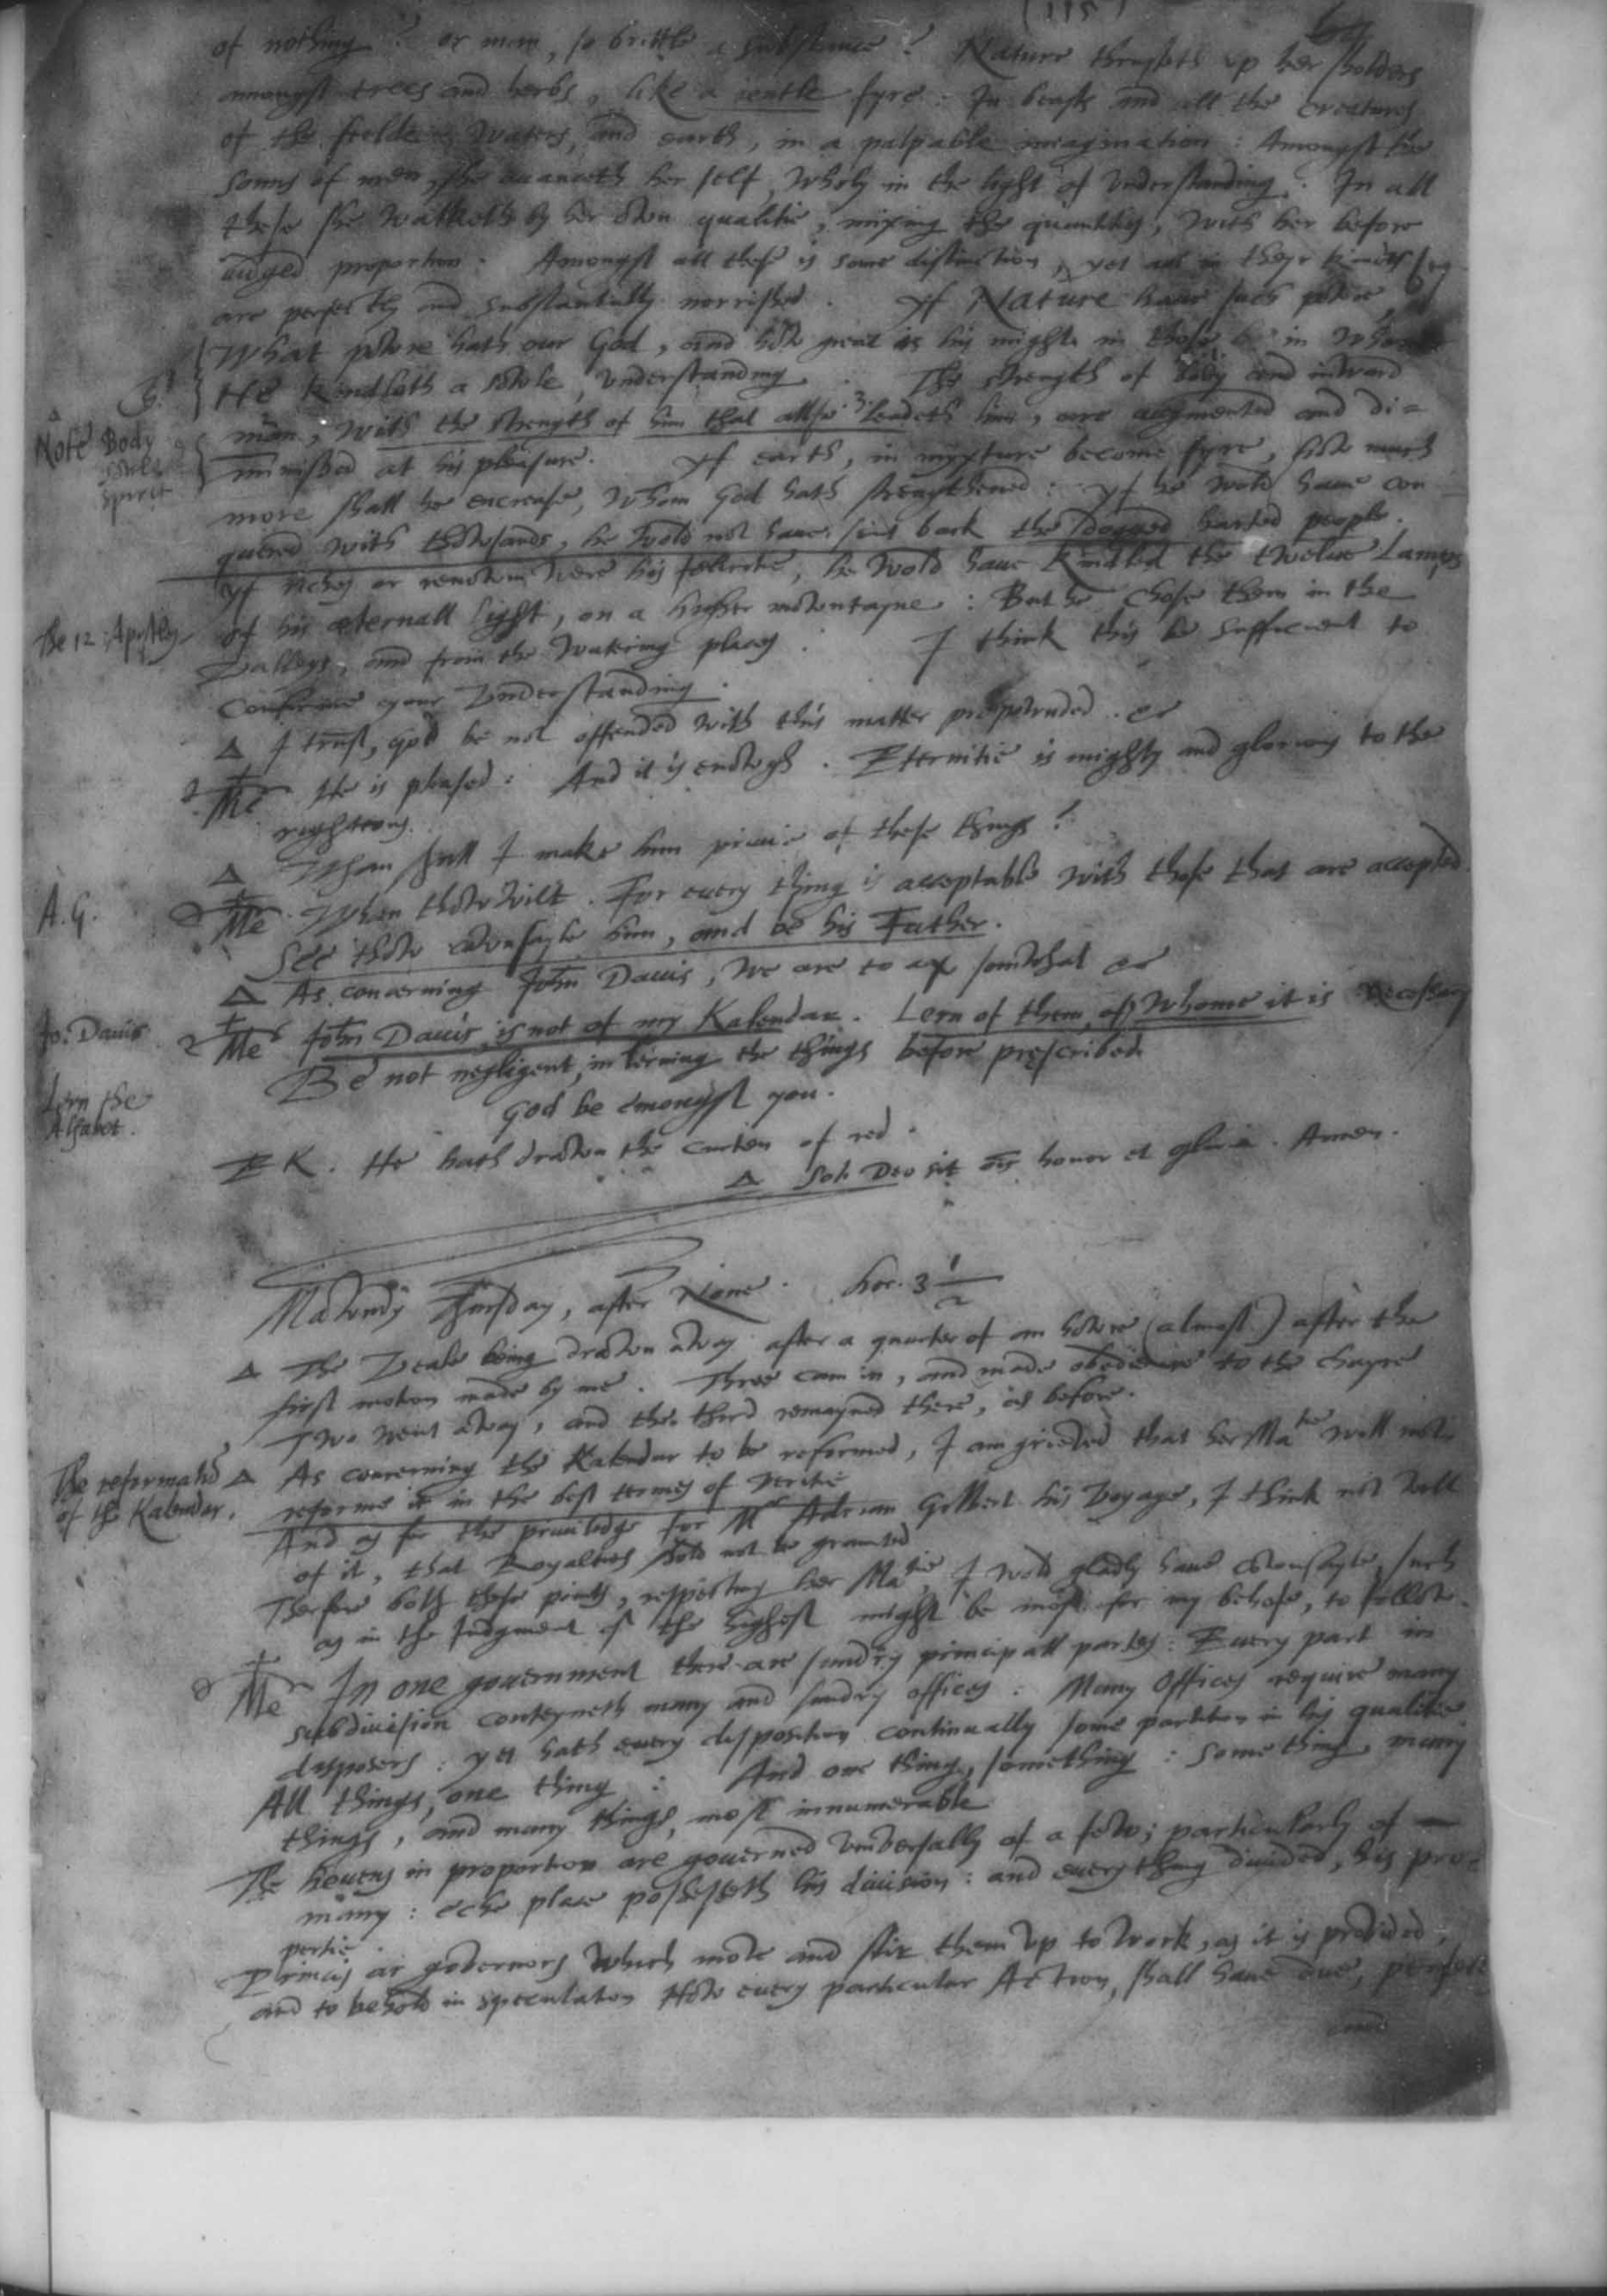 (115)
of nothing? or man, so brittle a substance? Nature thrusteth up her sholders
amongst trees and herbs, like a ientle fyre: In beasts and all the creatures
of the feelde, waters, and earth, in a palpable imagination: Amongst the
sonns of men, she auanceth her self, wholy in the light of vnderstanding. In all
these she walketh by her own qualitie, mixing the quantitie, with her before
iudged proportion. Amongst all these is some distinction, yet all in theyr
are perfectly and substantially norrished. Yf Nature haue such powre,
What powre hath our God, and how great is his might in those in whome
He kindleth a sowle, vnderstanding. The strength of body and inward
Note Body
sowle
spirit
man, with the strength of him that allso .3. leadeth him, are augmented and di=
minished at his pleasure. Yf earth, in myxture become fyre, how much
more shall he encrease, whom God hath strengthened: yf he wold haue con
quered with thowsands, he wold not haue sent back the dogged harted people.
Yf riches or renowne were his felicitie, he wold haue kindled the twelue Lamps
The 12: Apostles
of his æternall light, on a higher mowntayne: But he chose them in the
Valleys, and from the watering places. I think this be sufficient to
confirme your vnderstanding.
Δ I trust, god be not offended with this matter propownded. &c
Me He is pleased: And it is enowgh. Eternitie is mighty and glorious to the
righteous.
Δ Whan shall I make him priuie of these things?
A. G.
Me. Whan thow wilt. For euery thing is acceptable with those that are accepted.
See thow cownsayle him, and be his Father.
Δ As concerning John Dauis, we are to ax somwhat &c
Jo: Dauis
Me John Dauis, is not of my Kalendar. Lern of them, of whome it is necessary
Be not negligent, in lerning the things before prescribed.
Lern the
Alfabet.
God be amongst you.
EK. He hath drawn the curten of red.
Δ Soli Deo sit ois honor et gloria. Amen.
Mawndy Thursday, after None. hor. 3 1/2
Δ The Veale being drawn away after a quarter of an howre (almost) after the
first motion made by me. Three cam in, and made obedience to the chayre
Two went away, and the third remayned there, as before.
The reformatio
of the Kalendar.
Δ As concerning the Kalendar to be reformed, I am grieued that her Matie will not
reforme it in the best termes of veritie
And as for the priuiledge for Mr Adrian Gilbert his Voyage, I think not well
of it, that Royalties shold not be graunted
Therfore both these points, respecting her Matie, I wold gladly haue cownsayle, such
as in the Iudgment of the highest might be most for my behofe, to follow.
Me In one gouernment there are sundry principall partes: Euery part in
subdiuision conteyneth many and sundry offices: Many Offices require many
disposers: yet hath euery disposition continually some partition in his qualitie
All things, one thing: And one thing, something: some thing, many
things, and many things, most innumerable
The heuens in proportion are gouerned vniuersally of a few; particularly of
many: eche place possesseth his diuision: and euery thing diuided, his pro=
pertie.
Princis ar gouernors which moue and stir them vp to work, as it is prouided,
and to behold in speculation How euery particular Action, shall haue due, perfect